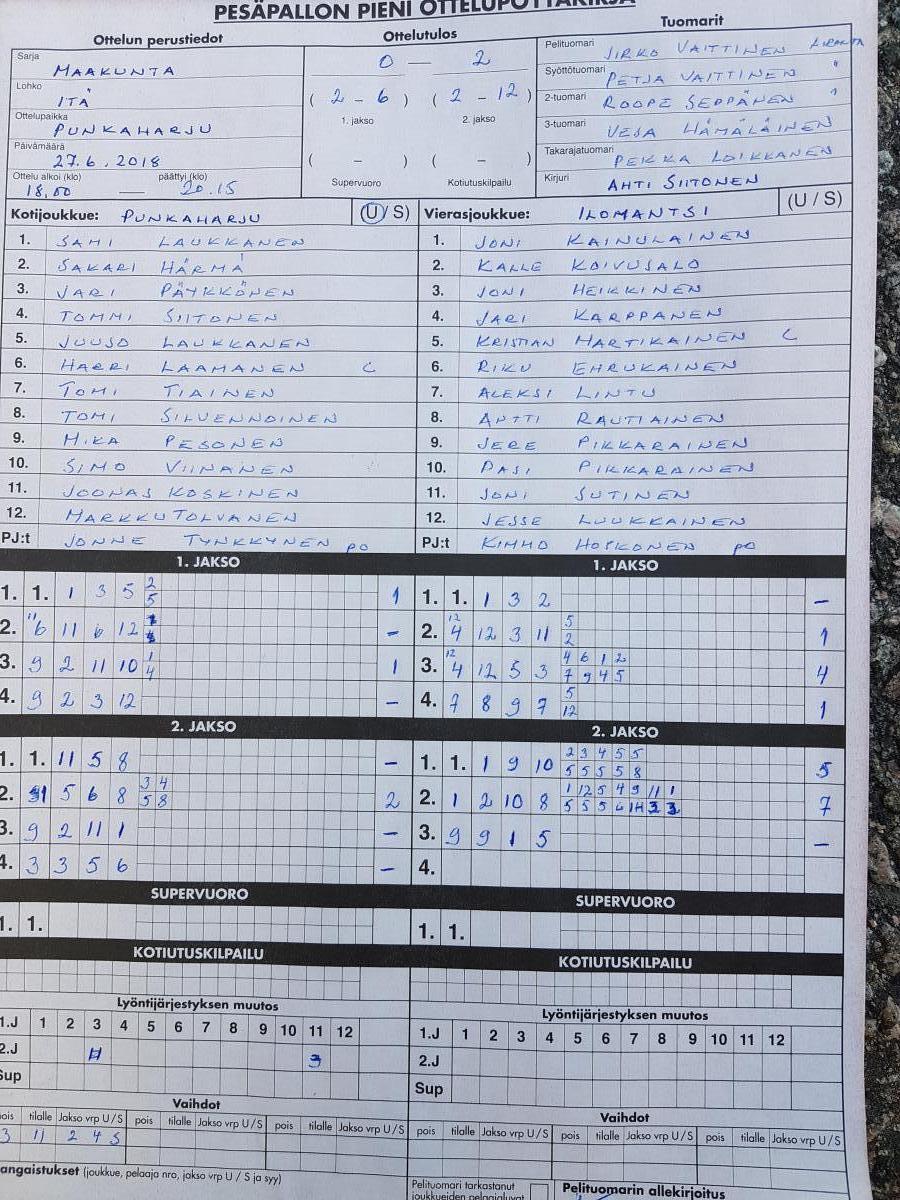 PESÄPALLON PIENI OTTELUPÖYTÄKIRJA
Ottelun perustiedot
Ottelutulos
Tuomarit
Sarja
MAAKUNTA
0 — 2
Pelituomari JIRKO VAITTINEN
Lohko
ITÄ
( 2 - 6 ) ( 2 - 12 )
Syöttötuomari PETJA VAITTINEN "
Ottelupaikka
PUNKAHARJU
1. jakso 2. jakso
2-tuomari ROOPE SEPPÄNEN "
Päivämäärä
27.6.2018
( - ) ( - )
3-tuomari VESA HÄMÄLÄINEN
Ottelu alkoi (klo) päättyi (klo)
18.00 — 20.15
Supervuoro Kotiutuskilpailu
Takarajatuomari PEKKA LOIKKANEN
Kirjuri AHTI SIITONEN
Kotijoukkue: PUNKAHARJU (U / S)
Vierasjoukkue: ILOMANTSI (U / S)
1. SAMI LAUKKANEN
1. JONI KAINULAINEN
2. SAKARI HÄRMÄ
2. KALLE KOIVUSALO
3. JARI PÄYKKÖNEN
3. JONI HEIKKINEN
4. TOMMI SIITONEN
4. JARI KARPPANEN
5. JUUSO LAUKKANEN
5. KRISTIAN HARTIKAINEN C
6. HARRI LAAMANEN C
6. RIKU EHRUKAINEN
7. TOMI TIAINEN
7. ALEKSI LINTU
8. TOMI SILVENNOINEN
8. ANTTI RAUTIAINEN
9. MIKA PESONEN
9. JERE PIKKARAINEN
10. SIMO VIINANEN
10. PASI PIKKARAINEN
11. JOONAS KOSKINEN
11. JONI SUTINEN
12. MARKKU TOLVANEN
12. JESSE LUUKKAINEN
PJ:t JONNE TYNKKYNEN PO
PJ:t KIMMO HOSKONEN PO
1. JAKSO
1. JAKSO
1. 1. 1 3 5 2 5 1
1. 1. 1 3 2 –
2. 6 11 6 12 –
2. 12 4 12 3 11 5 2 1
3. 9 2 11 10 1 4 1
3. 12 4 12 5 3 4 6 1 2 7 9 4 5 4
4. 9 2 3 12 –
4. 7 8 9 7 5 12 1
2. JAKSO
2. JAKSO
1. 1. 11 5 8 –
1. 1. 1 9 10 2 3 4 5 5 5 5 5 5 8 5
2. 5 6 8 3 4 5 8 2
2. 1 2 10 8 1 12 5 4 9 11 1 5 5 5 6 3 3 7
3. 9 2 11 1 –
3. 9 9 1 5 –
4. 3 3 5 6 –
4.
SUPERVUORO
SUPERVUORO
1. 1.
1. 1.
KOTIUTUSKILPAILU
KOTIUTUSKILPAILU
Lyöntijärjestyksen muutos
Lyöntijärjestyksen muutos
1.J 1 2 3 4 5 6 7 8 9 10 11 12
1.J 1 2 3 4 5 6 7 8 9 10 11 12
2.J 11 3
2.J
Sup
Sup
Vaihdot
Vaihdot
pois tilalle Jakso vrp U / S pois tilalle Jakso vrp U / S pois tilalle Jakso vrp U / S
pois tilalle Jakso vrp U / S pois tilalle Jakso vrp U / S pois tilalle Jakso vrp U / S
3 11 2 4 S
angaistukset (joukkue, pelaaja nro, jakso vrp U / S ja syy)
Pelituomari tarkastanut
joukkueiden pelaajaluvat
Pelituomarin allekirjoitus